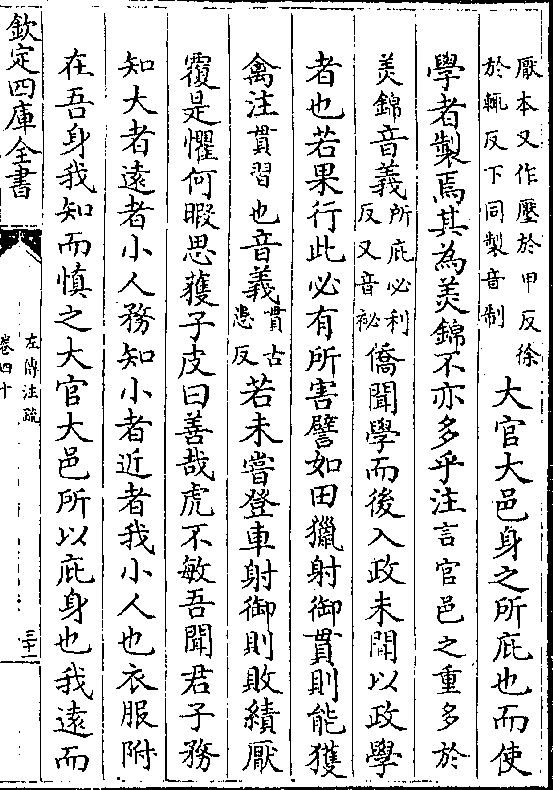 厭本又作壓於甲反徐
於輒反下同製音制
大官大邑身之所庇也而使
學者製焉其為美錦不亦多乎注言官邑之重多於
美錦音義
所庇必利
反又音祕
僑聞學而後入政未聞以政學
者也若果行此必有所害譬如田獵射御貫則能獲
禽注貫習也音義
貫古
患反
若未嘗登車射御則敗績厭
覆是懼何暇思獲子皮曰善哉虎不敏吾聞君子務
知大者遠者小人務知小者近者我小人也衣服附
在吾身我知而慎之大官大邑所以庇身也我遠而
欽定四庫全書
左傳注疏
卷四十
三十一